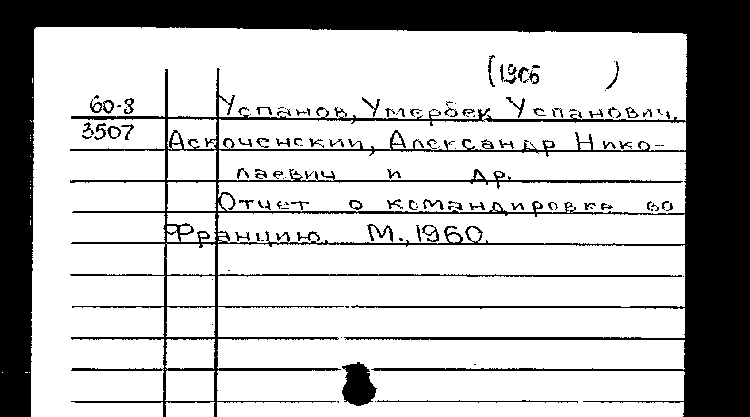 (1906 )
60-8
3507
Успанов, Умербек Успанович,
Аскоченский, Александр Нико-
лаевич и др.
Отчет о командировке во
Францию. М., 1960.